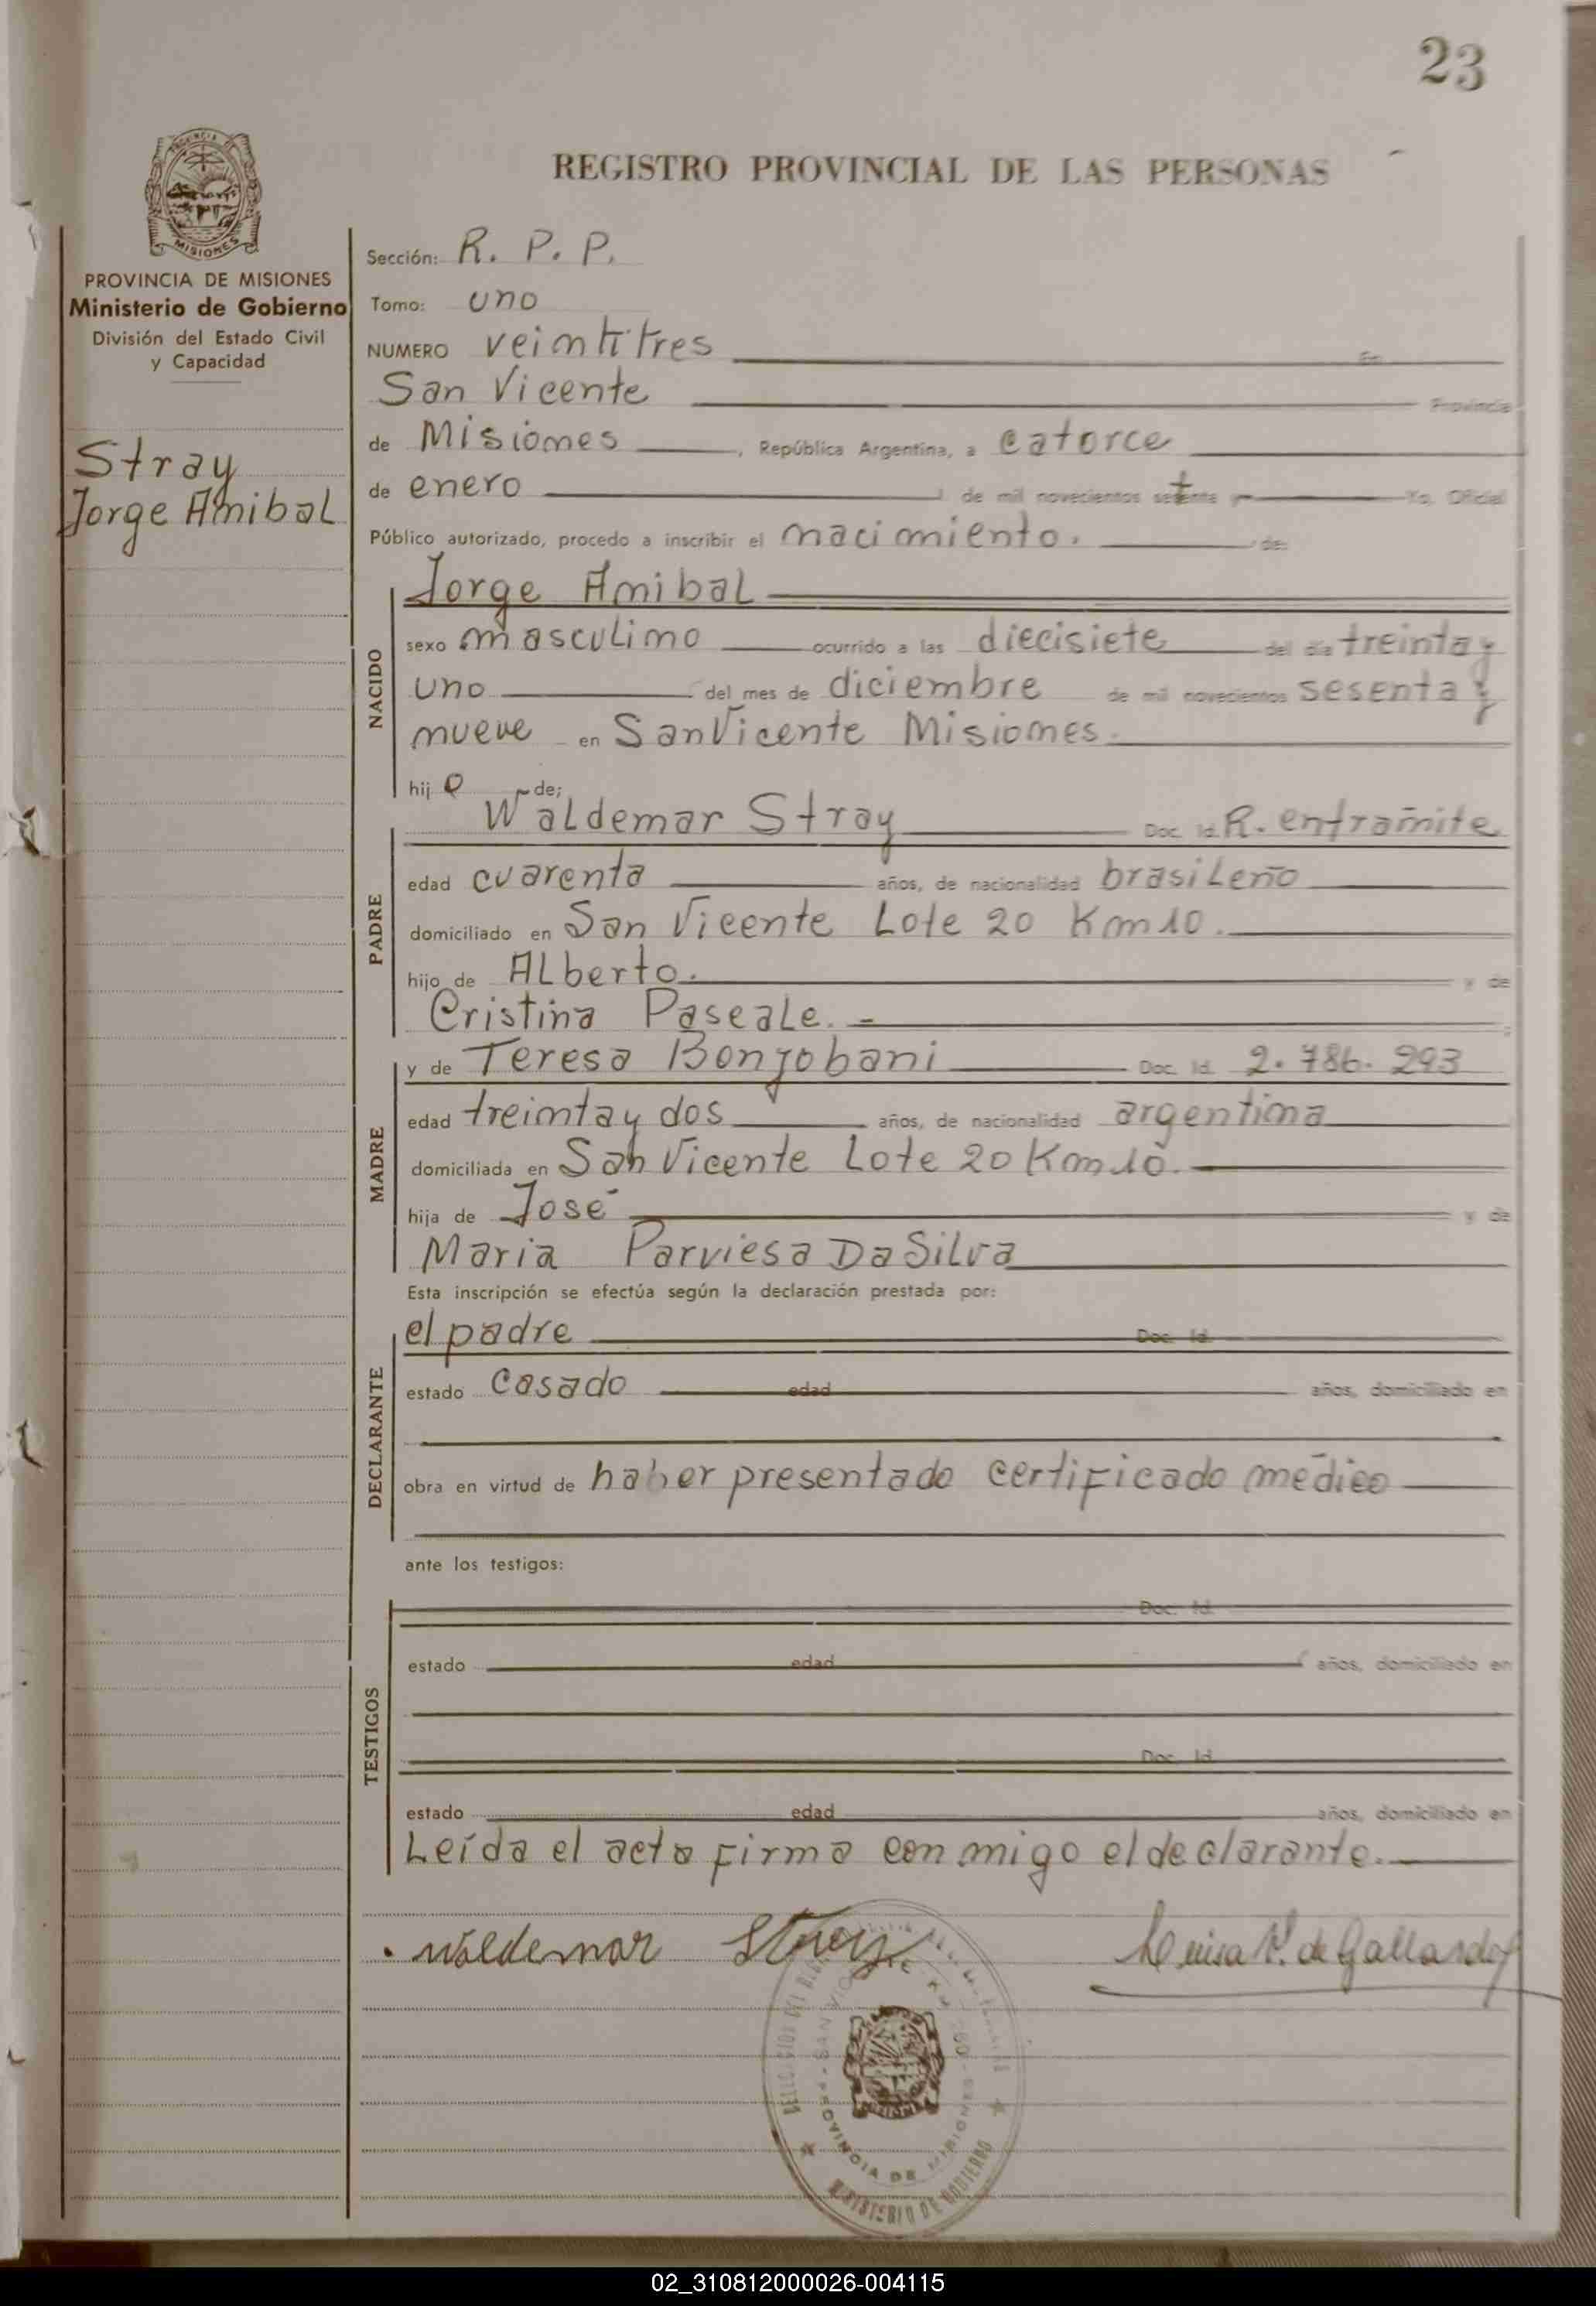 23
REGISTRO PROVINCIAL DE LAS PERSONAS
PROVINCIA DE
MISIONES
PROVINCIA DE MISIONES
Ministerio de Gobierno
División del Estado Civil
y Capacidad
Stray
Jorge Anibal
Sección: R. P. P.
Tomo: uno
NUMERO veintitres En
San Vicente Provincia
de Misiones, República Argentina, a catorce
de enero de mil novecientos setenta y Yo, Oficial
Público autorizado, procedo a inscribir el nacimiento. de:
NACIDO
Jorge Anibal
sexo masculino ocurrido a las diecisiete del día treinta y
uno del mes de diciembre de mil novecientos sesenta y
nueve en San Vicente Misiones.
hijo de;
PADRE
Waldemar Stray Doc. Id. R. en tramite
edad cuarenta años, de nacionalidad brasileño
domiciliado en San Vicente Lote 20 Km 10.
hijo de Alberto. y de
Cristina Paseale. -
MADRE
y de Teresa Bonjobani Doc. Id. 2.786.293
edad treinta y dos años, de nacionalidad argentina
domiciliada en San Vicente Lote 20 Km 10.
hija de José y de
Maria Parviesa Da Silva
Esta inscripción se efectúa según la declaración prestada por:
DECLARANTE
el padre Doc. Id.
estado Casado edad años, domiciliado en
obra en virtud de haber presentado certificado médico
ante los testigos:
TESTIGOS
Doc. Id.
estado edad años, domiciliado en
Doc. Id.
estado edad años, domiciliado en
Leída el acta firma conmigo el declarante.
Waldemar Stray
Luisa V. de Gallardo
PROVINCIA DE MISIONES
MINISTERIO DE GOBIERNO
02_310812000026-004115